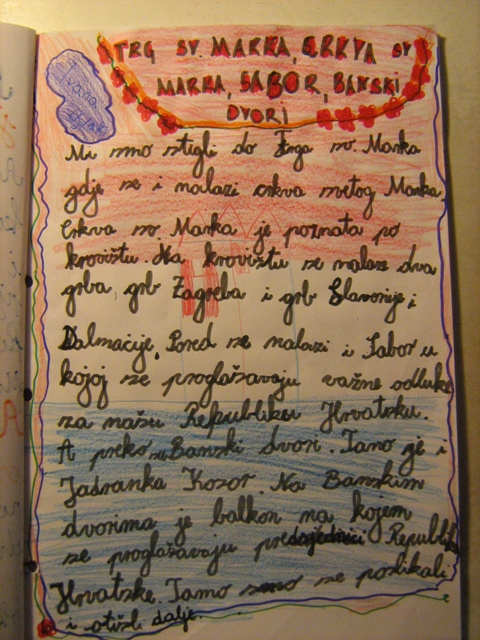 TRG SV. MARKA, CRKVA SV
MARKA, SABOR, BANSKI
DVORI
Ivona
Mi smo stigli do Trga sv. Marka
gdje se i malazi crkva svetog Marka.
Crkva sv. Marka je poznata po
krovištu. Na krovištu se nalaze dva
grba, grb Zagreba i grb Slavonije i
Dalmacije. Pored se nalazi i Sabor u
kojoj se proglašavaju važne odluke
za našu Republiku Hrvatsku.
A preko su Banski dvori. Tamo je i
Jadranka Kosor. Na Banskim
dvorima je balkon na kojem
se proglašavaju predsjednici Republike
Hrvatske. Tamo smo se poslikali
i otišli dalje.